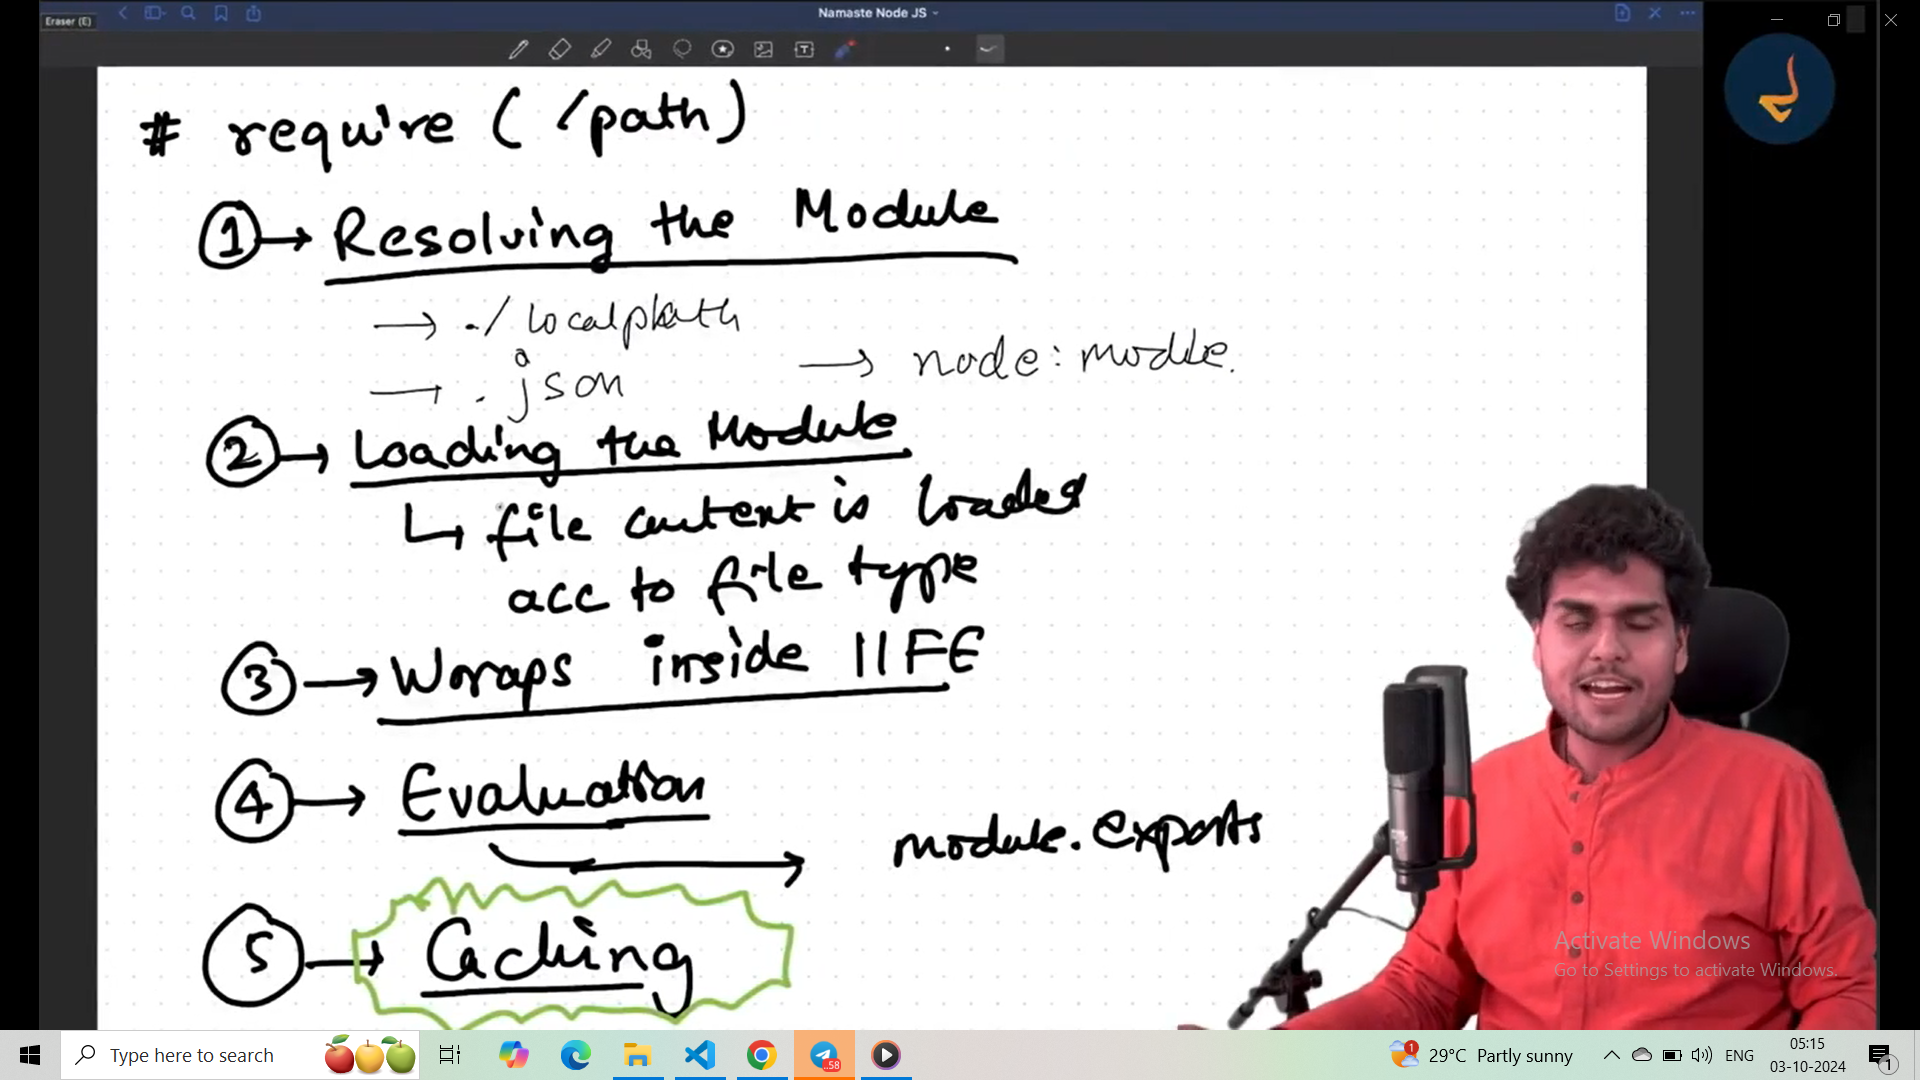 Eraser (E)
Namaste Node JS
# require ( /path)
1 → Resolving the Module
→ ./ localpath
→ .json → node: module.
2 → Loading the Module
↳ file content is loaded
acc to file type
3 → Wraps inside IIFE
4 → Evaluation
→ module.exports
5 → Caching
Activate Windows
Go to Settings to activate Windows.
Type here to search
..58
1
29°C Partly sunny
ENG
05:15
03-10-2024
1